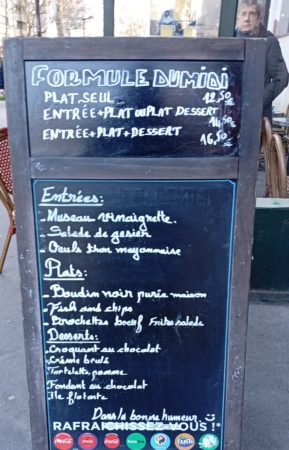 FORMULE DU MIDI
PLAT SEUL 12,50€
ENTRÉE+PLAT OU PLAT DESSERT
14,50€
ENTRÉE+PLAT+DESSERT
16,50€
Entrées:
- Museau vinaigrette.
- Salade de gesier
- Oeufs thon mayonnaise
Plats:
- Boudin noir purée maison
- Fish and chips
- Brochettes boeuf Frites salade
Desserts:
- Croquant au chocolat
- Crème brulé
Tartelette pomme
- Fondant au chocolat
Ile flotante
Dans la bonne humeur
RAFRAICHISSEZ-VOUS !*
FANTA